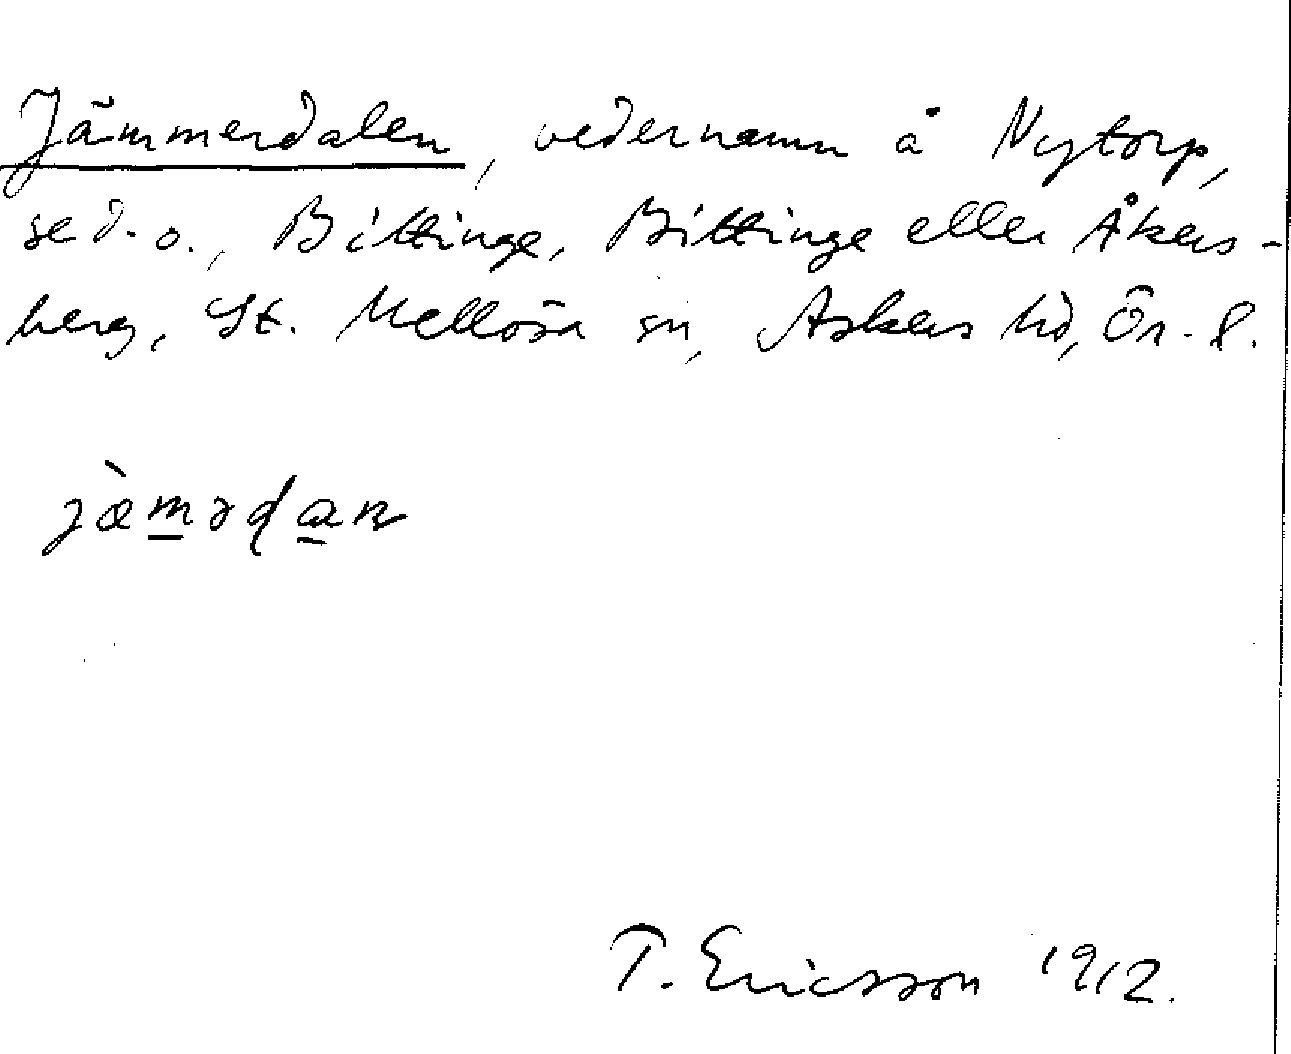 Jämmerdalen, vedernamn å Nytorp,
se d. o., Bittinge, Bittinge eller Åkers-
berg, St. Mellösa sn, Askers hd, Ör. l.
jæ̀mədan
T. Ericsson 1912.